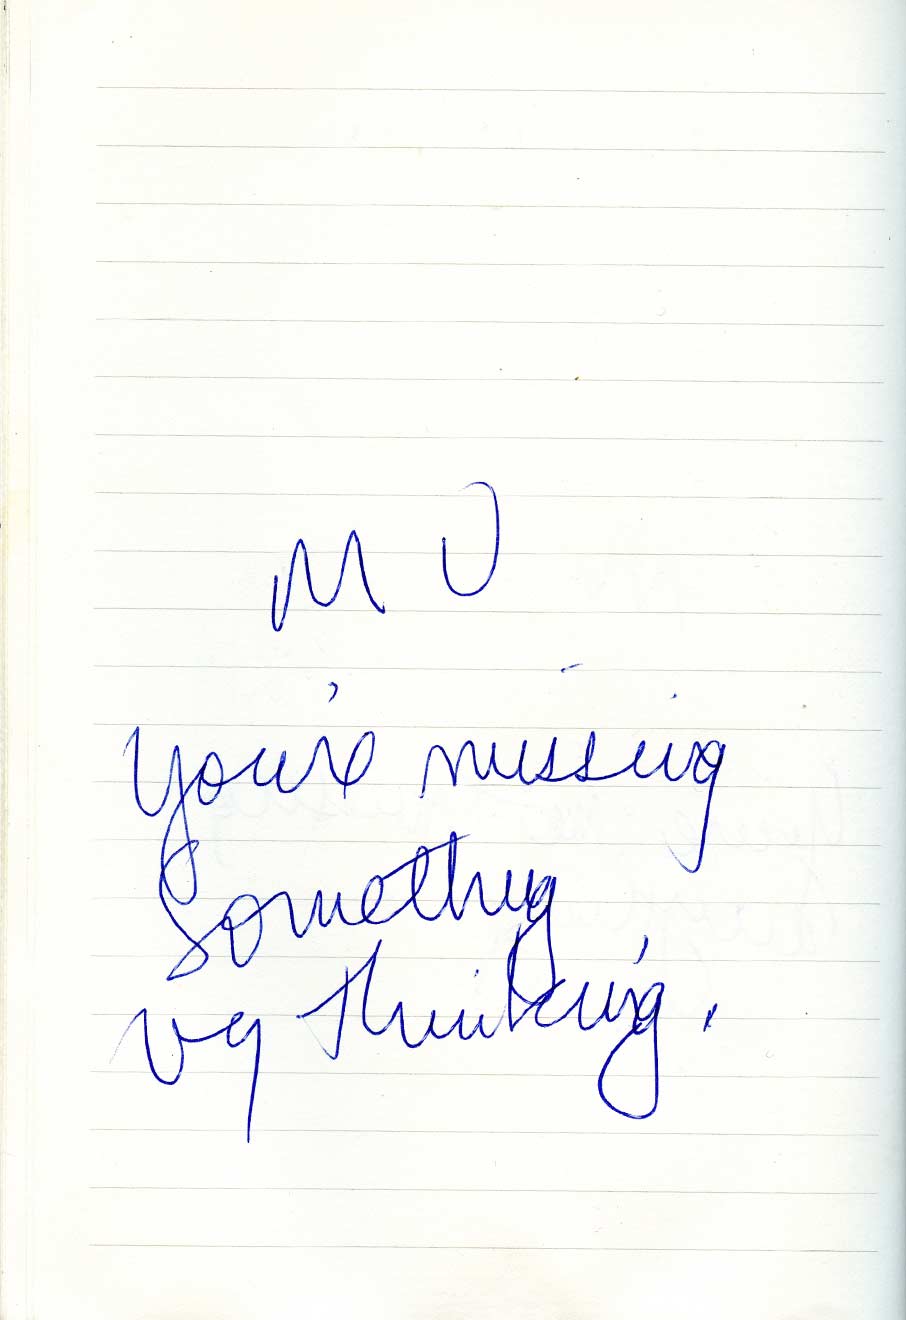 M O
You're missing
something
by thinking.